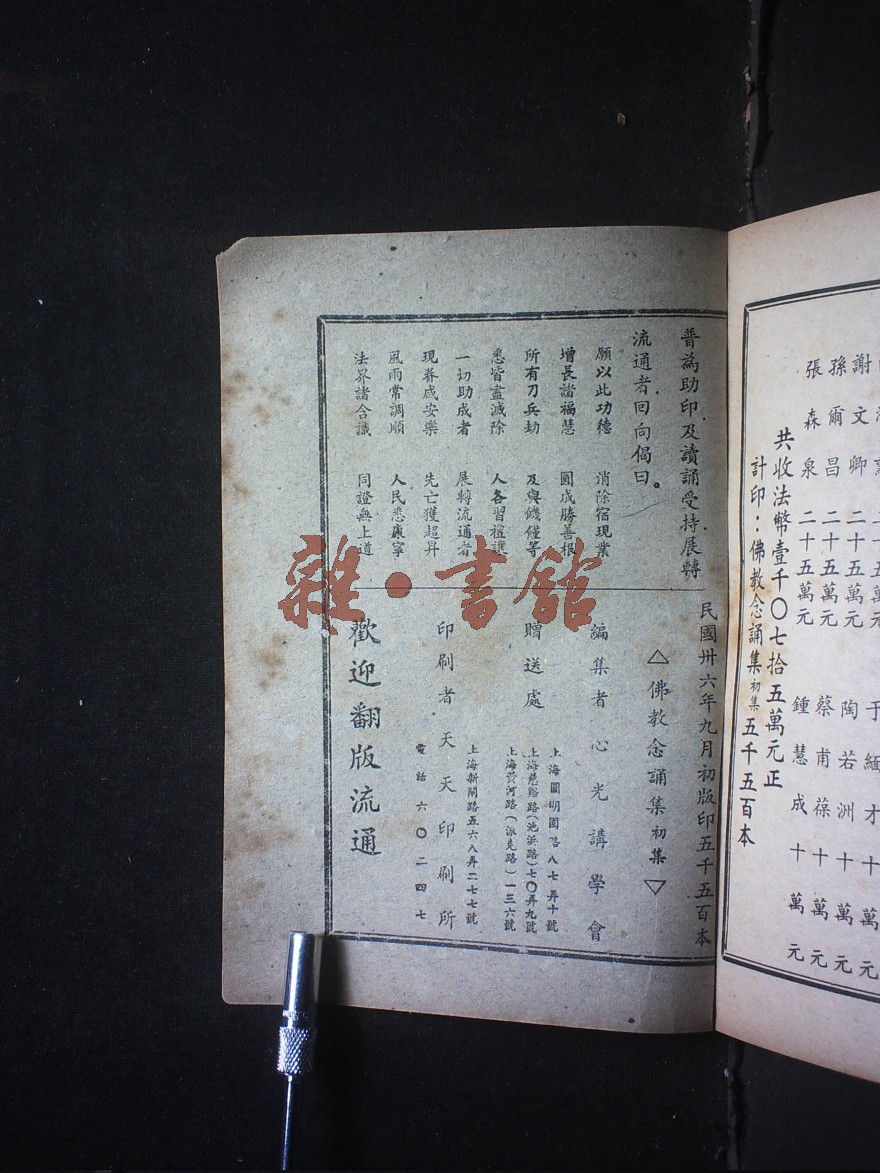 謝文卿 二十五萬元 陶若洲 十萬元
孫爾昌 二十五萬元 蔡甫葆 十萬元
張森泉 二十五萬元 鍾慧成 十萬元
共收法幣壹千〇七拾五萬元正
計印：佛教念誦集初集五千五百本
普為助印及讀誦受持展轉
流通者回向偈曰。
願以此功德 消除宿現業
增長諸福慧 圓成勝善根
所有刀兵劫 及與饑饉等
悉皆盡滅除 人各習禮讓
一切助成者 展轉流通者
現眷咸安樂 先亡獲超昇
風雨常調順 人民悉康寧
法界諸含識 同證無上道
民國卅六年九月初版印五千五百本
△佛教念誦集初集▽
編集者 心光講學會
贈送處
上海圓明園路八七弄十號
上海慈谿路(池浜路)七〇弄九號
上海黃河路(派克路)一三六號
上海新閘路五六八弄二七七號
印刷者 天天印刷所
電話 六〇二四七
歡迎翻版流通
雜·書館